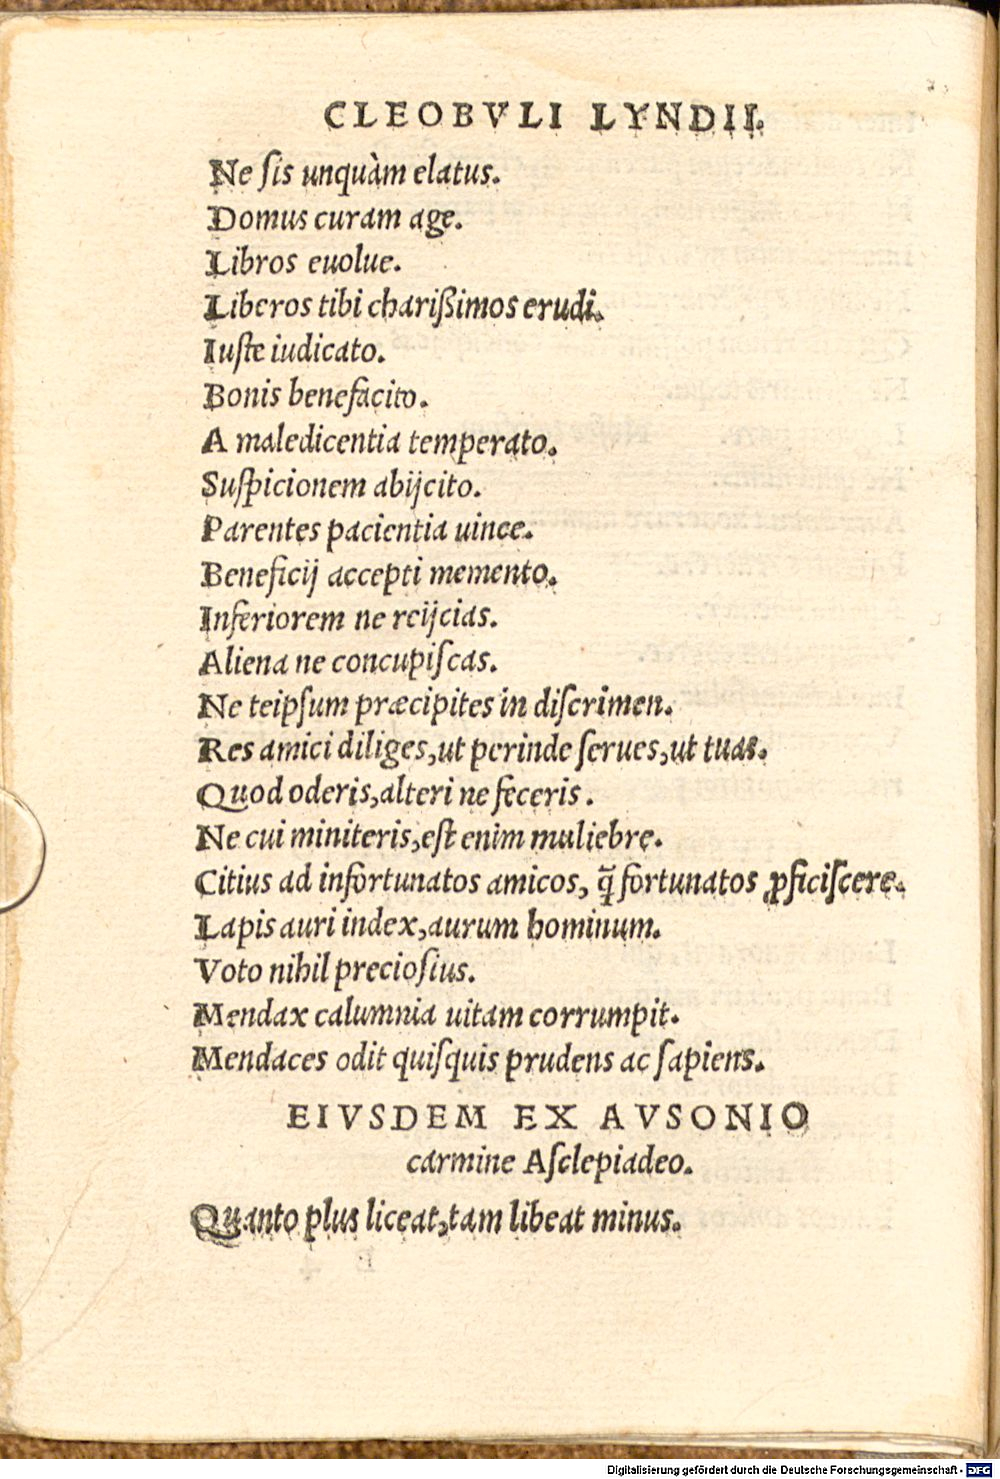 CLEOBVLI LYNDII.
Ne ſis unquàm elatus.
Domus curam age.
Libros euolue.
Liberos tibi charißimos erudi.
Iuſte iudicato.
Bonis benefacito.
A maledicentia temperato.
Suſpicionem abijcito.
Parentes pacientia uince.
Beneficij accepti memento.
Inferiorem ne reijcias.
Aliena ne concupiſcas.
Ne teipſum præcipites in diſcrimen.
Res amici diliges, ut perinde ſerues, ut tuas.
Quod oderis, alteri ne feceris.
Ne cui miniteris, eſt enim muliebre.
Citius ad infortunatos amicos, q̃ fortunatos ꝓficiſcere.
Lapis auri index, aurum hominum.
Voto nihil precioſius.
Mendax calumnia uitam corrumpit.
Mendaces odit quiſquis prudens ac ſapiens.
EIVSDEM EX AVSONIO
carmine Aſclepiadeo.
Quanto plus liceat, tam libeat minus.
Digitalisierung gefördert durch die Deutsche Forschungsgemeinschaft - DFG